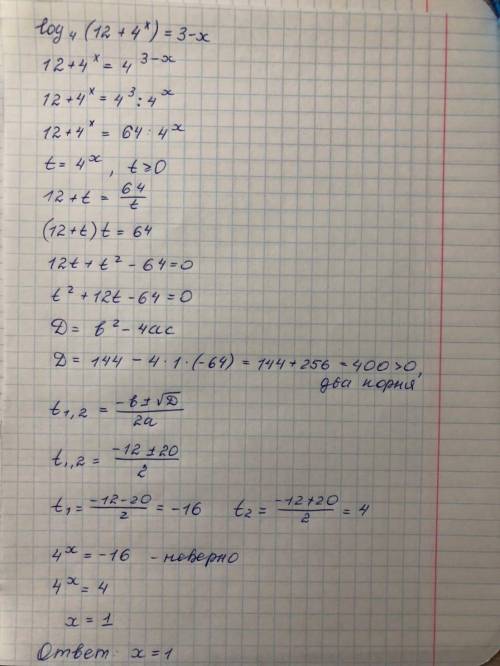 log₄(12 + 4ˣ) = 3-x
12 + 4ˣ = 4³⁻ˣ
12 + 4ˣ = 4³ : 4ˣ
12 + 4ˣ = 64 : 4ˣ
t = 4ˣ, t ≥ 0
12 + t = 64/t
(12 + t) t = 64
12t + t² - 64 = 0
t² + 12t - 64 = 0
D = b² - 4ac
D = 144 - 4 · 1 · (-64) = 144 + 256 = 400 > 0,
два корня
t₁,₂ = (-b ± √D)/2a
t₁,₂ = (-12 ± 20)/2
t₁ = (-12 - 20)/2 = -16 t₂ = (-12 + 20)/2 = 4
4ˣ = -16 - неверно
4ˣ = 4
x = 1
Ответ: x = 1